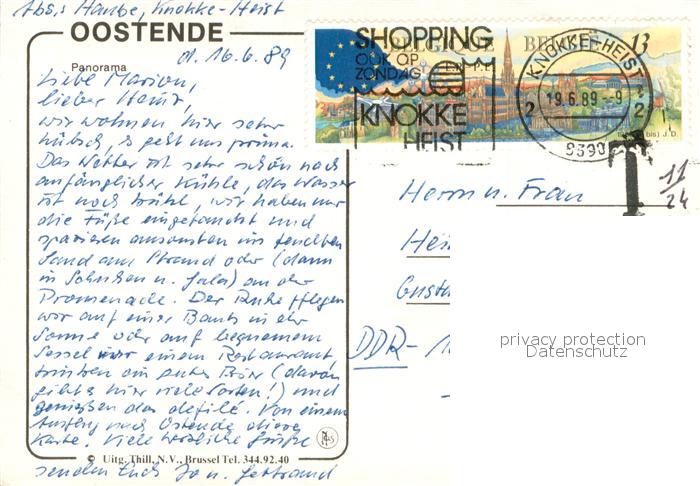 Abs.: Haube, Knokke-Heist
OOSTENDE
Panorama
d. 16.6.89
Liebe Marion,
lieber Heinz,
wir wohnen hier sehr
hübsch, es geht uns prima.
Das Wetter ist sehr schön nach
anfänglicher Kühle, das Wasser
ist noch kühl, wir haben nur
die Füße eingetaucht und
spazieren ansonsten im feuchten
Sand am Strand oder (dann
in Schuhen u. Gala) an der
Promenade. Der Ruhe pflegen
wir auf einer Bank in der
Sonne oder auf bequemem
Sessel vor einem Restaurant
trinken ein gutes Bier (davon
gibt's hier viele Sorten!) und
genießen das defilé. Von einem
Ausflug nach Ostende diese
Karte. Viele herzliche Grüße
senden Euch Jo u.
© Uitg. Thill, N.V., Brussel Tel. 344.92.40
SHOPPING
OOK OP
ZONDAG
KNOKKE
HEIST
BELGIQUE BELGIË 13
KNOKKE-HEIST
19.6.89-9
2 2
8390
11
24
Herrn u. Frau
Hei
Gusta
DDR-
privacy protection
Datenschutz